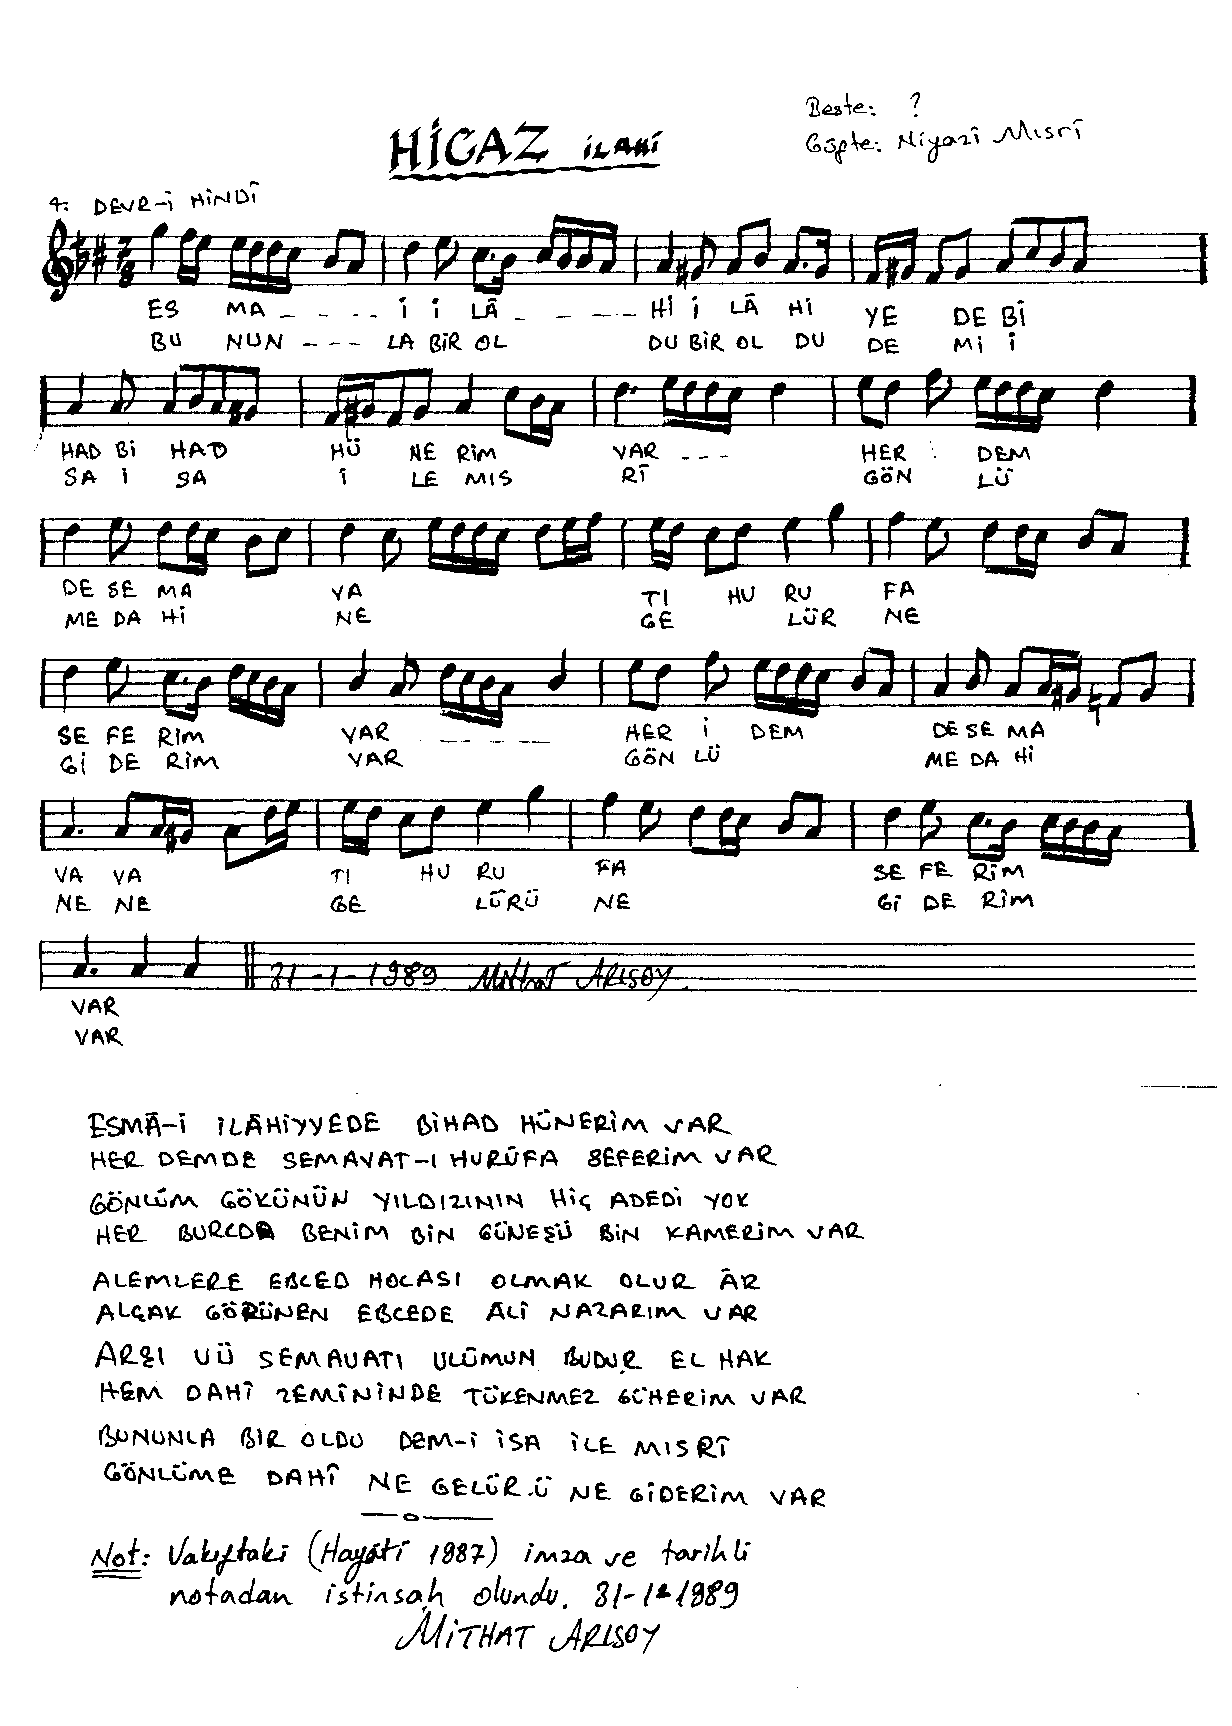 Beste: ?
HİCAZ İLAHİ
Güfte: Niyazî Mısrî
4. DEVR-İ HİNDÎ
7
8
ES MA _ _ _ _ _ İ İ LÂ _ _ _ _ _ Hİ İ LÂ Hİ YE DE Bİ
BU NUN _ _ _ LA BİR OL DU BİR OL DU DE Mİ İ
HAD Bİ HAD HÜ NE RİM VAR _ _ _ HER DEM
SA İ SA İ LE MIS RÎ GÖN LÜ
DE SE MA VA TI HU RU FA
ME DA Hİ NE GE LÜR NE
SE FE RİM VAR _ _ _ _ _ HER İ DEM DE SE MA
Gİ DE RİM VAR GÖN LÜ ME DA Hİ
VA VA TI HU RU FA SE FE RİM
NE NE GE LÜRÜ NE Gİ DE RİM
31-1-1989 Mithat ARISOY
VAR
VAR
ESMÂ-İ İLÂHİYYEDE BİHAD HÜNERİM VAR
HER DEMDE SEMAVAT-I HURÛFA SEFERİM VAR
GÖNLÜM GÖKÜNÜN YILDIZININ HİÇ ADEDİ YOK
HER BURCDA BENİM BİN GÜNEŞÜ BİN KAMERİM VAR
ALEMLERE EBCED HOCASI OLMAK OLUR ÂR
ALÇAK GÖRÜNEN EBCEDE ÂLİ NAZARIM VAR
ARŞI VÜ SEMAVATI ULÛMUN BUDUR EL HAK
HEM DAHÎ ZEMÎNİNDE TÜKENMEZ GÜHERİM VAR
BUNUNLA BİR OLDU DEM-İ İSA İLE MISRÎ
GÖNLÜME DAHÎ NE GELÜR.Ü NE GİDERİM VAR
Not: Vakıftaki (Hayâtî 1987) imza ve tarihli
notadan istinsah olundu. 31-1-1989
MİTHAT ARISOY